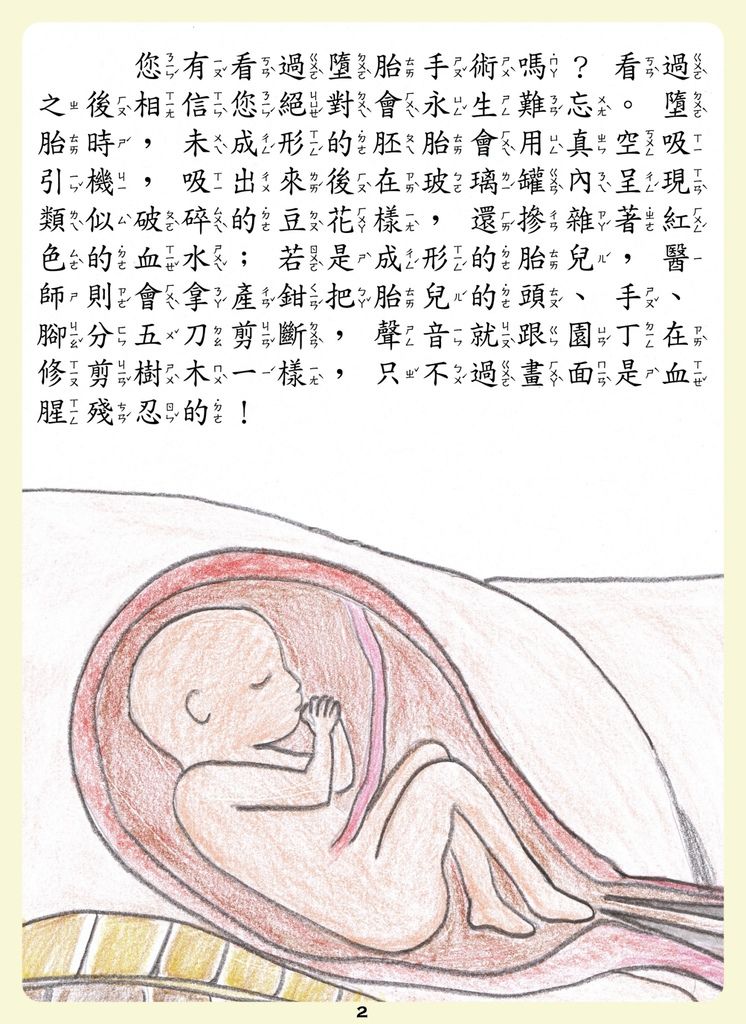 您有看過墮胎手術嗎？看過
之後相信您絕對會永生難忘。墮
胎時，未成形的胚胎會用真空吸
引機，吸出來後在玻璃罐內呈現
類似破碎的豆花樣，還摻雜著紅
色的血水；若是成形的胎兒，醫
師則會拿產鉗把胎兒的頭、手、
腳分五刀剪斷，聲音就跟園丁在
修剪樹木一樣，只不過畫面是血
腥殘忍的！
2